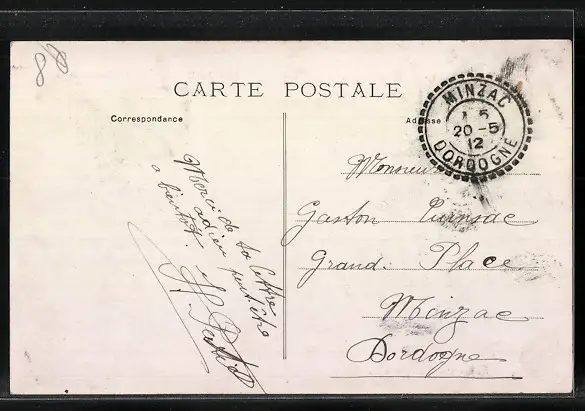 8
CARTE POSTALE
Correspondance
Adresse
MINZAC
5
20-5
12
DORDOGNE
Merci de ta lettre
adieu peut être
a bientôt.
Monsieur
Gaston
Grand. Place
Minzac
Dordogne